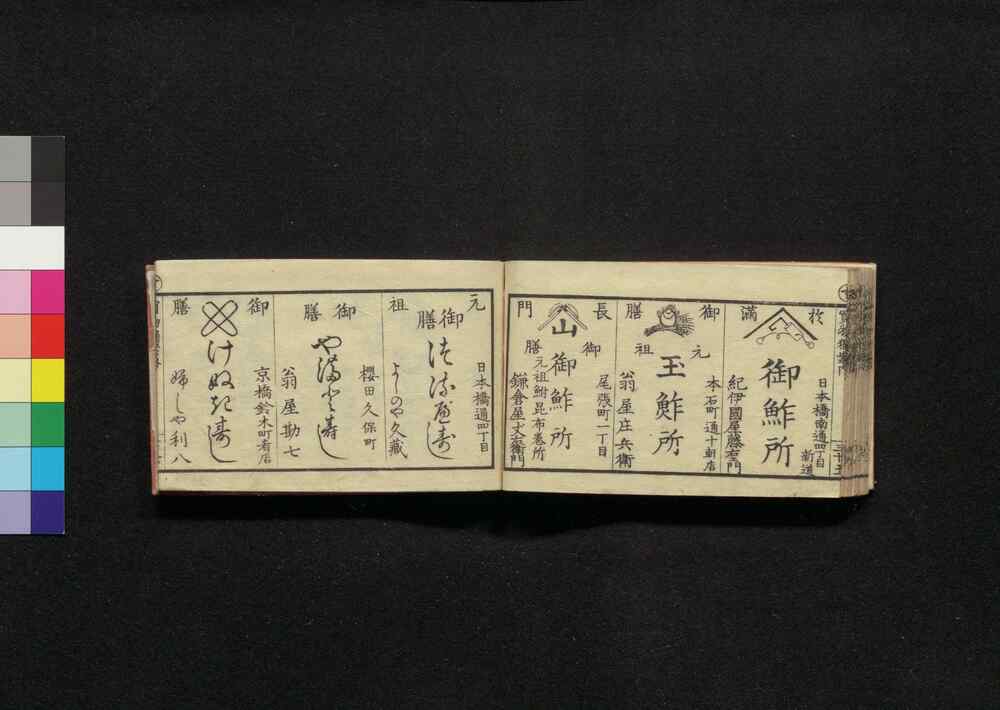 於
満
御鮓所
日本橋南通四丁目
新道
紀伊國屋藤右衛門
御
膳
元
祖
玉鮓所
本石町通十軒店
翁屋庄兵衛
長
門
山
御
膳
御鮓所
尾張町一丁目
元祖鮒昆布巻所
元
祖
御膳
日本橋通四丁目
よしのや久蔵
御
膳
櫻田久保町
翁屋勘七
御
膳
けぬきすし
京橋鈴木町肴店
婦しや利八